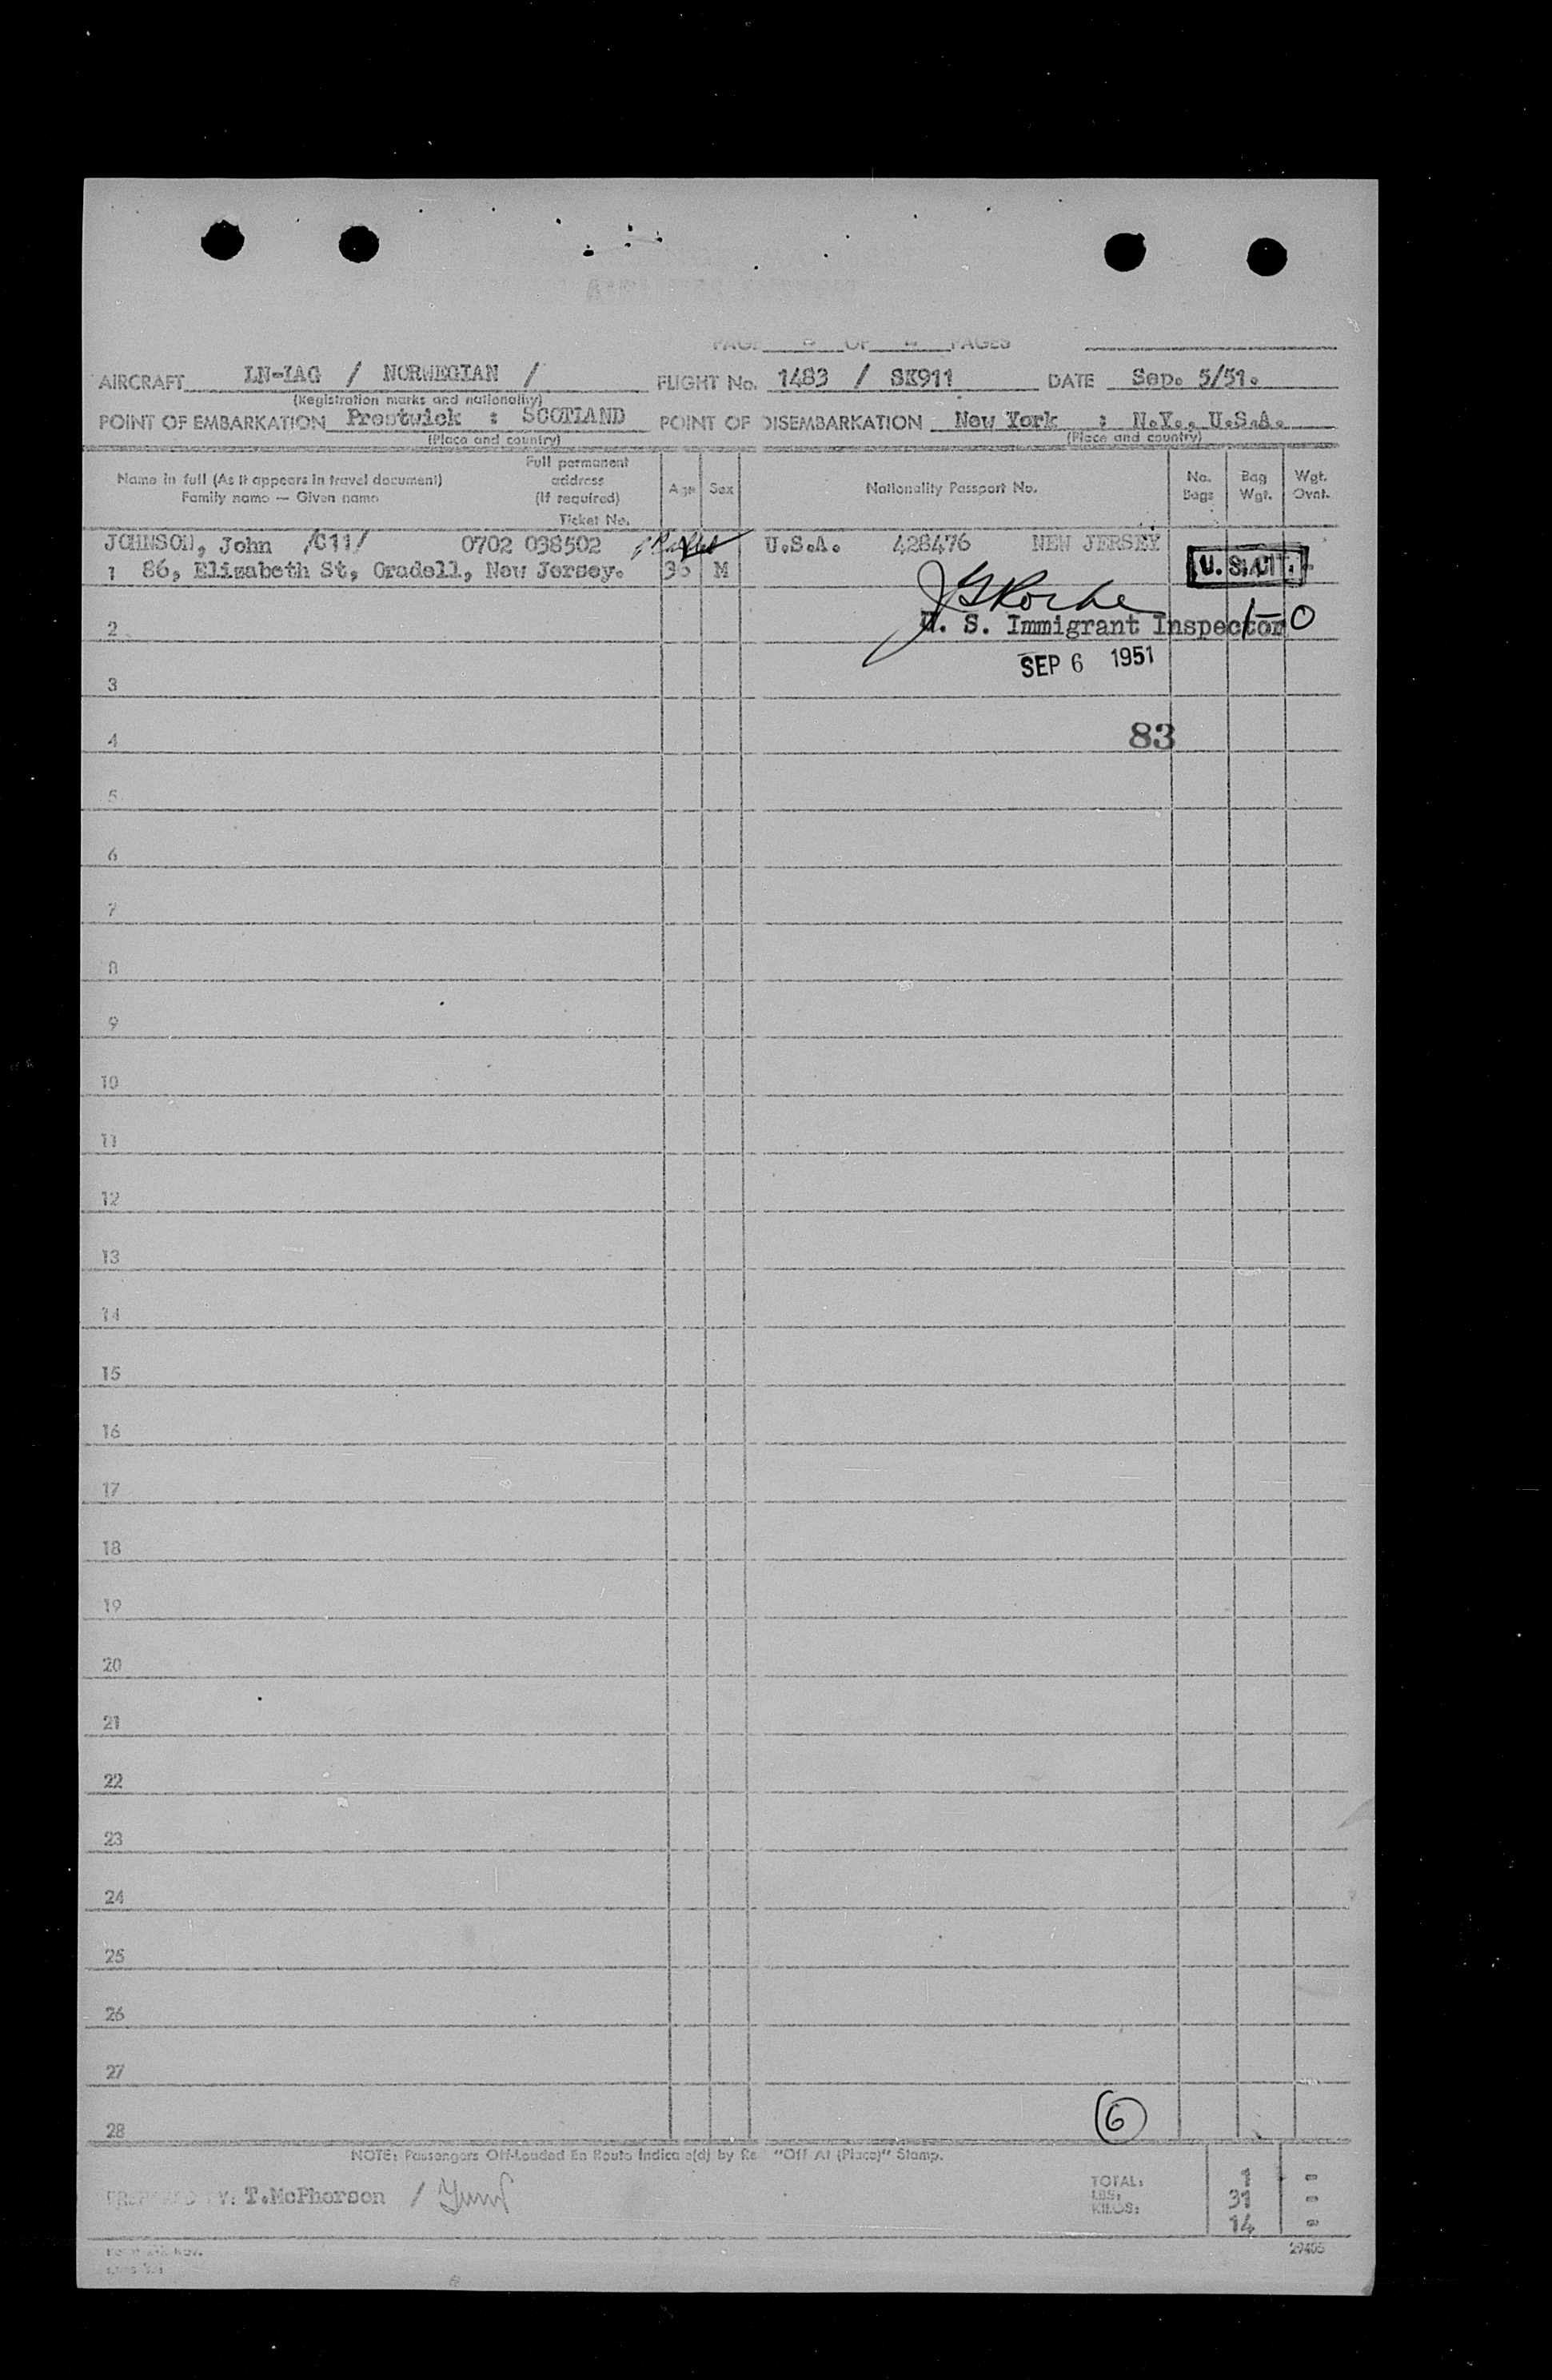 PAGE OF PAGES
AIRCRAFT LN-IAG / NORWEGIAN / FLIGHT No. 1483 / SK911 DATE Sep. 5/51.
(Registration marks and nationality)
POINT OF EMBARKATION Prestwick : SCOTLAND POINT OF DISEMBARKATION New York : N.Y., U.S.A.
(Place and country) (Place and country)
Name in full (As it appears in travel document)
Family name — Given name
Full permanent
address
(If required)
Ticket No.
Age Sex Nationality Passport No. No. Bags Bag Wgt. Wgt. Ovnt.
JOHNSON, John /C11/ 0702 038502 U.S.A. 428476 NEW JERSEY
1 86, Elizabeth St, Oradell, New Jersey. 36 M U.S.CIT.
2 U. S. Immigrant Inspector 1-0
SEP 6 1951
3
4 83
5
6
7
8
9
10
11
12
13
14
15
16
17
18
19
20
21
22
23
24
25
26
27
28 6
NOTE: Passengers Off-Loaded En Route Indicate(d) by Re "Off At (Place)" Stamp.
PREPARED BY: T.McPherson /
TOTAL: 1 -
LBS: 31 -
KILOS: 14 -
29405